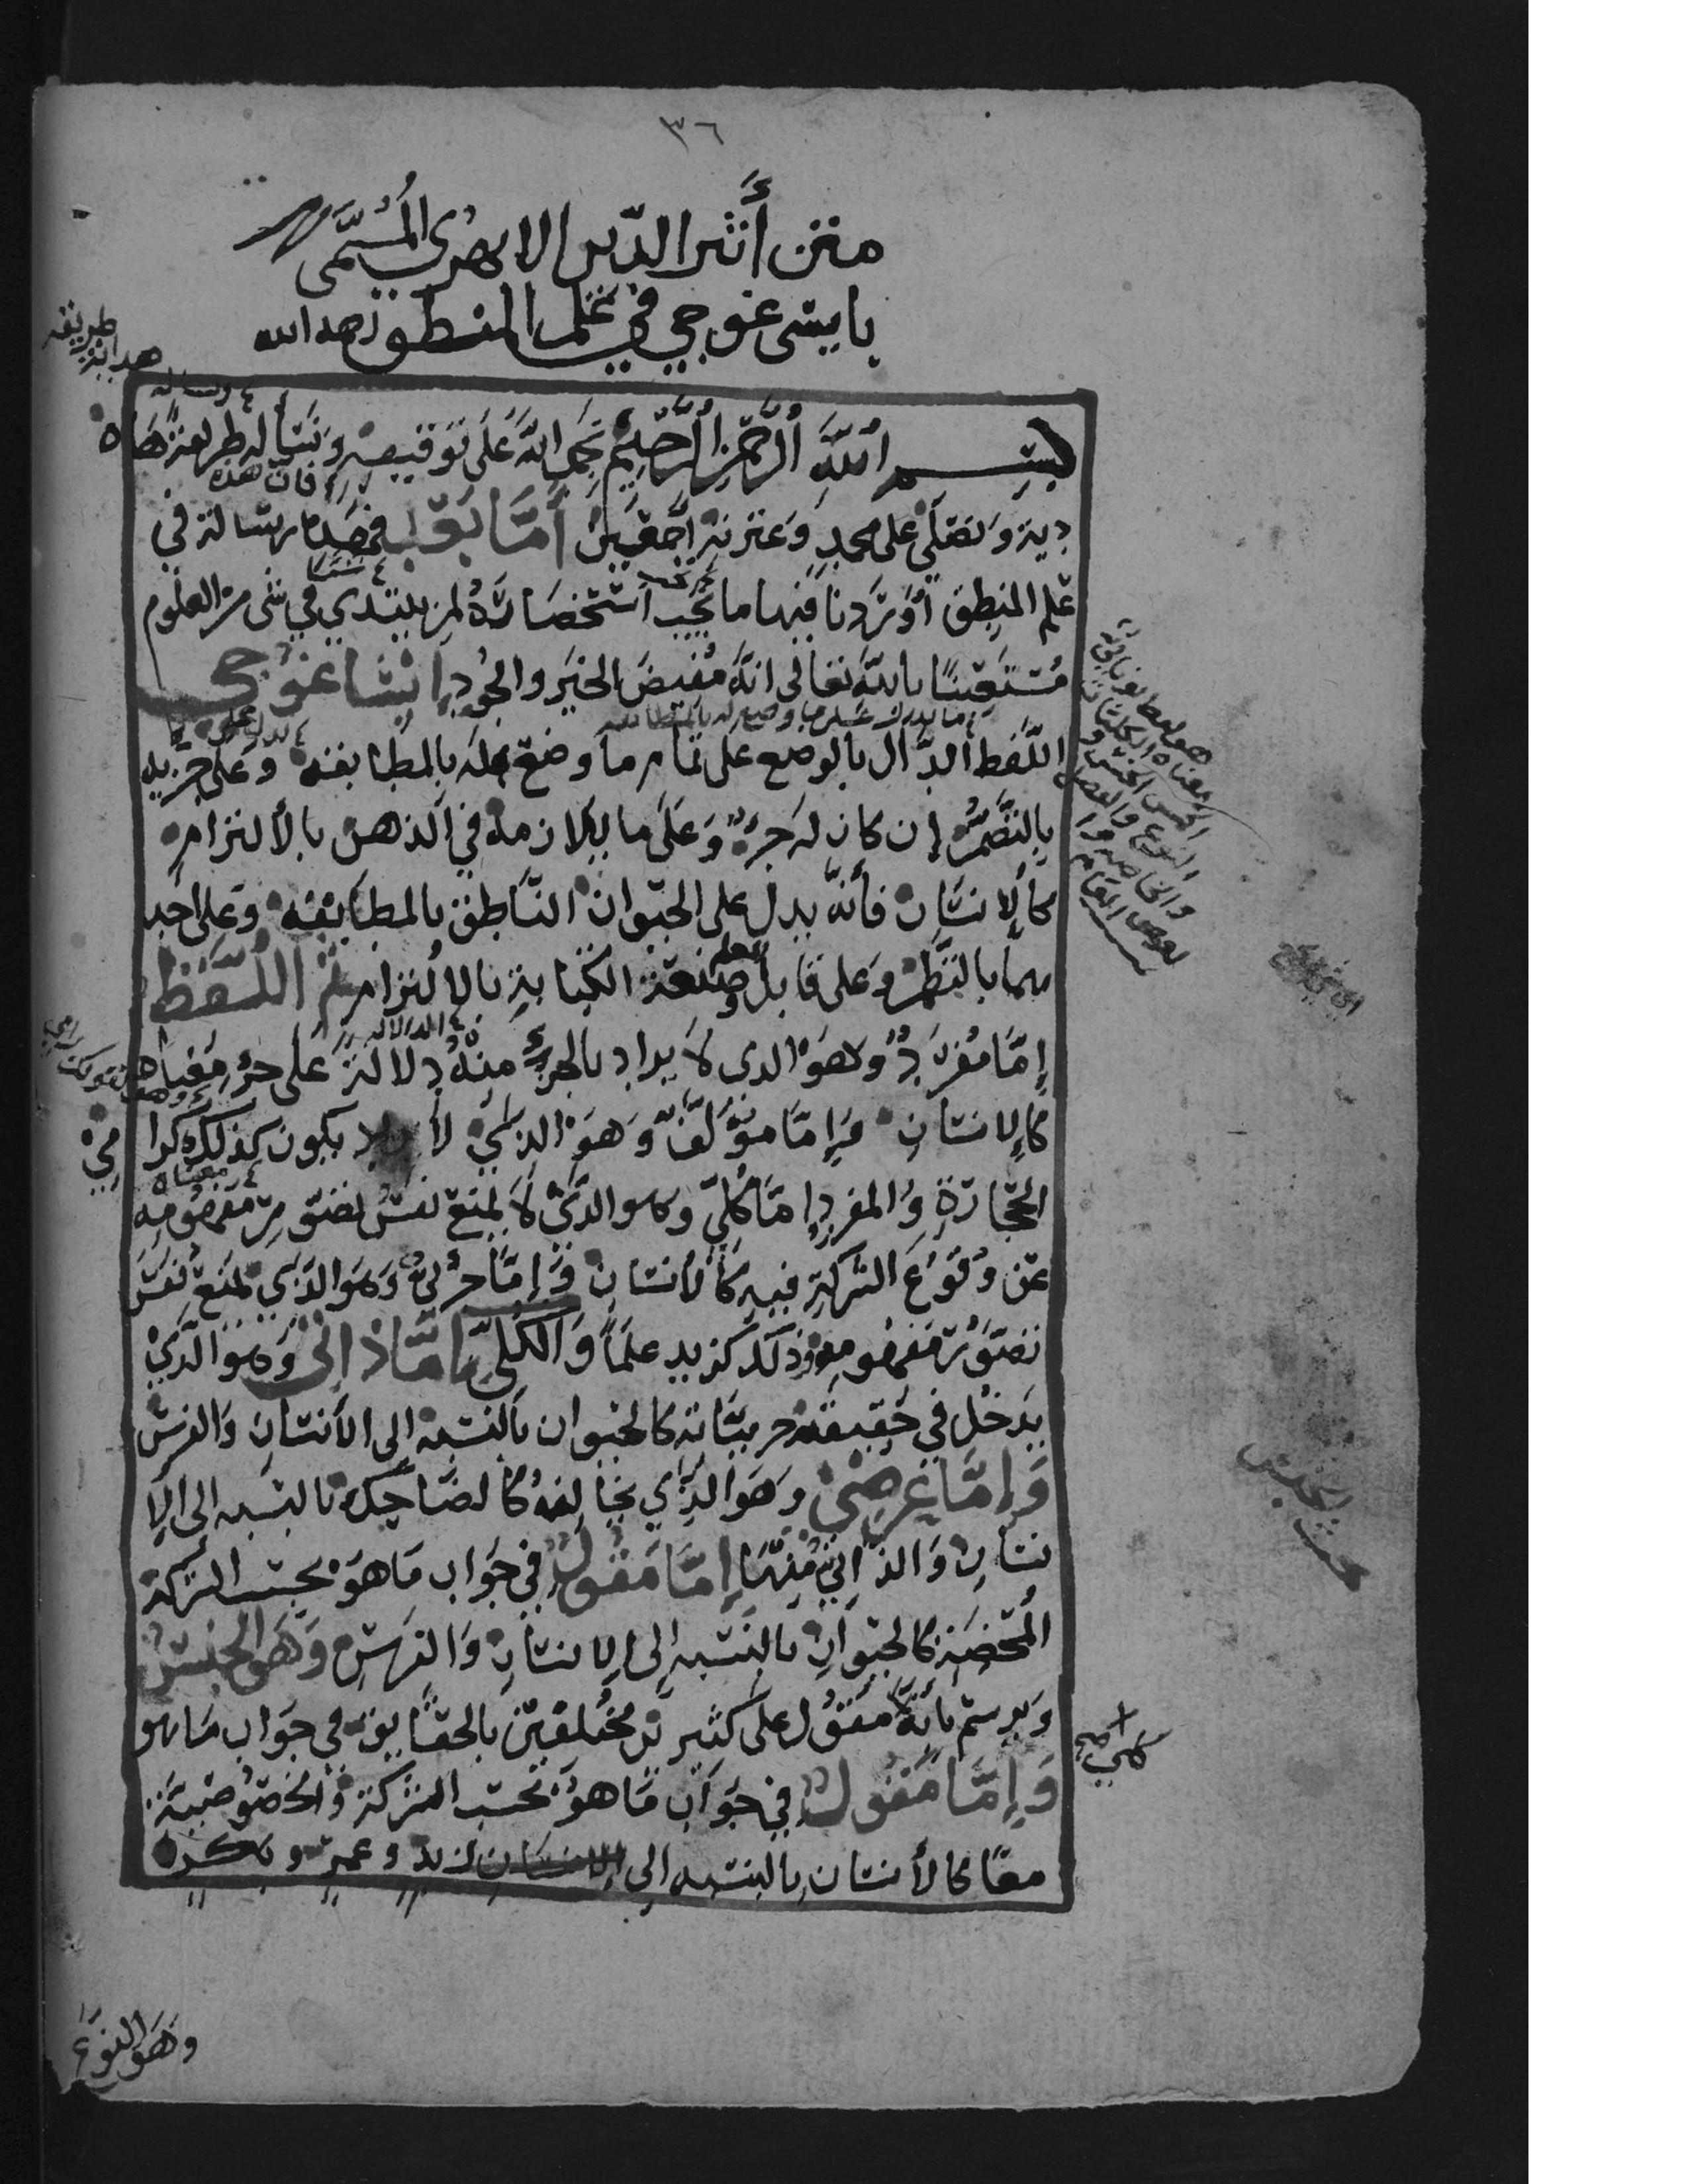 ٣٦
متن أثير الدين الابهري المسمى
بايسى غوجي في علم المنطق رحمه الله
بسم الله الرحمن الرحيم نحمد الله على توفيقه ونسأله طريقة هدا
فان هذه
دية ونصلي على محمد وعترته اجمعين أما بعد فهذه رسالة في
علم المنطق أوردنا فيها ما يجب استحضاره لمن يبتدي في شى من العلوم
مستعينا بالله تعالى انه مفيض الخير والجود إيساغوجي
اللفظ الدال بالوضع على تمام ما وضع له بالمطابقة وعلى جزيه
بالتضمن إن كان له جزء وعلى ما يلازمه في الذهن بالألتزام
كالإنسان فأنه يدل على الحيوان الناطق بالمطابقه وعلى احد
هما بالتظمن وعلى قابل العلم وصنعة الكتابة بالالتزام ثم اللفظ
إما مفرد وهو الدى لا يراد بالجزء منه دلالة على جزء معناه
كالإنسان وإما مؤلف وهو الذي لا يكون كذلك كرامي
الحجارة والمفرد إما كلي وهو الذي لا يمنع نفس تصور مفهومه
عن وقوع الشركة فيه كالأنسان وإما جزئي وهو الذي يمنع نفس
تصور مفهومه وذلك كزيد علما والكلي إما ذاتي وهو الذي
يدخل في حقيقة جزيياته كالحيوان بالنسبة إلى الأنسان والفرس
وإما عرضي وهو الذي يخالفه كالضاحك بالنسبه الى الإ
نسان والذاتي منهما إما مقول في جواب ما هو بحسب الشركة
المحضة كالحيوان بالنسبه إلى الإنسان والفرس وهو الجنس
ويرسم بأنه مقول على كثيرين مختلفين بالحقايق في جواب ما هو
كلي صح
وإما مقول في جواب ما هو بحسب الشركة والخصوصية
معا كالأنسان بالنسبه إلى الإنسان زيد وعمر وبكر
وهو النوع